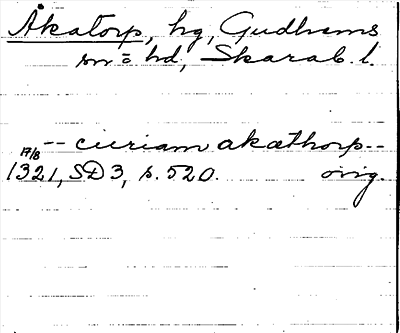 Åkatorp, hg, Gudhems
sn o hd, Skarab. l.
-- curiam akathorp --
17/8
1321, SD 3, s. 520. orig.